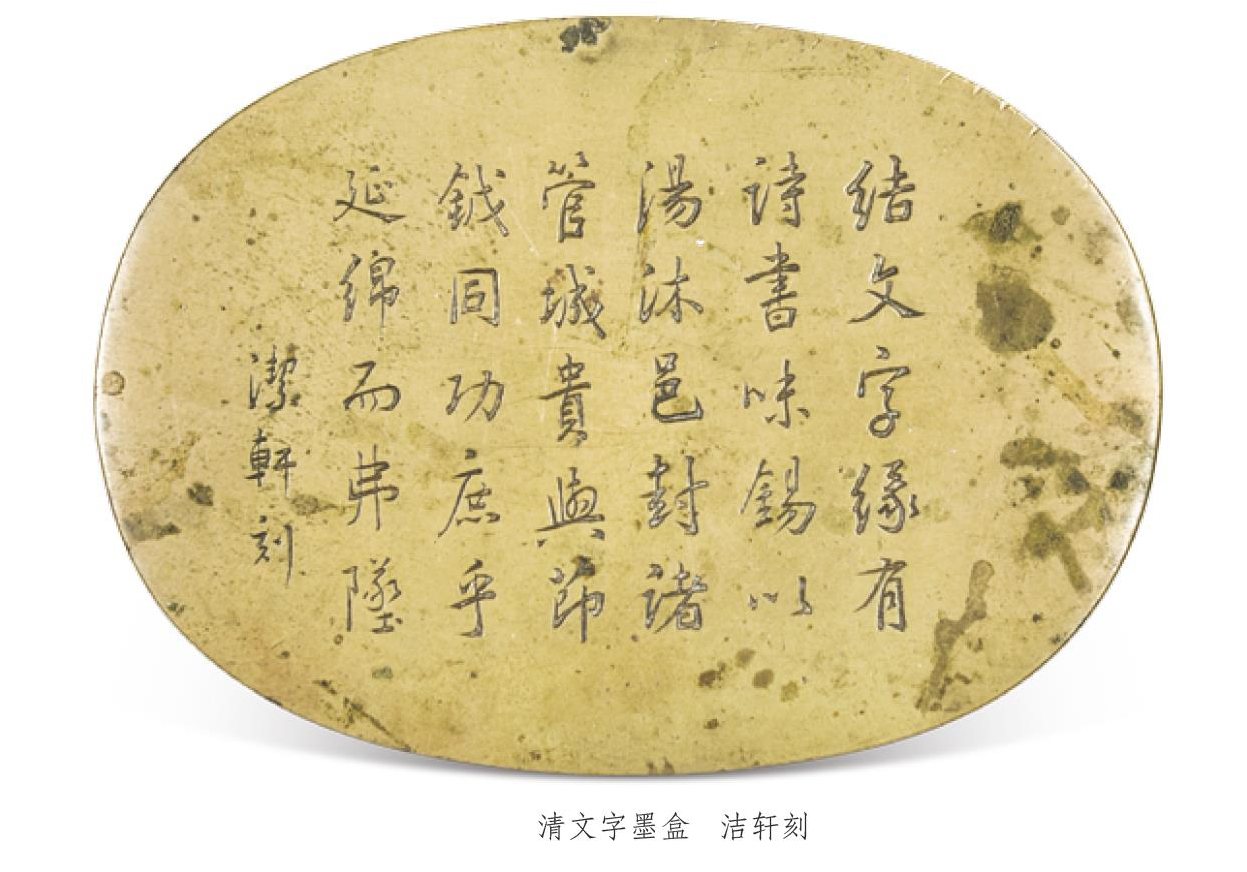 結文字緣有
詩書味錫以
湯沐邑封諸
管城貴與節
鉞同功庶乎
延綿而弗墜
潔軒刻
清文字墨盒 洁轩刻